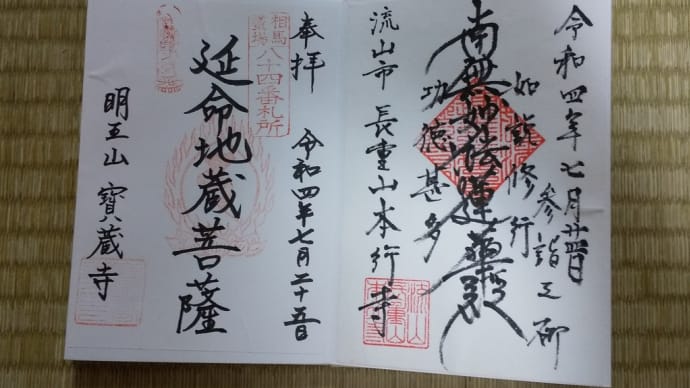 令和四年七月
参詣之砌
如説修行
南無妙法蓮華経
功徳甚多
流山市 長重山本行寺
奉拝 令和四年七月二十五日
相馬霊場
八十四番札所
延命地蔵菩薩
明王山 寶蔵寺